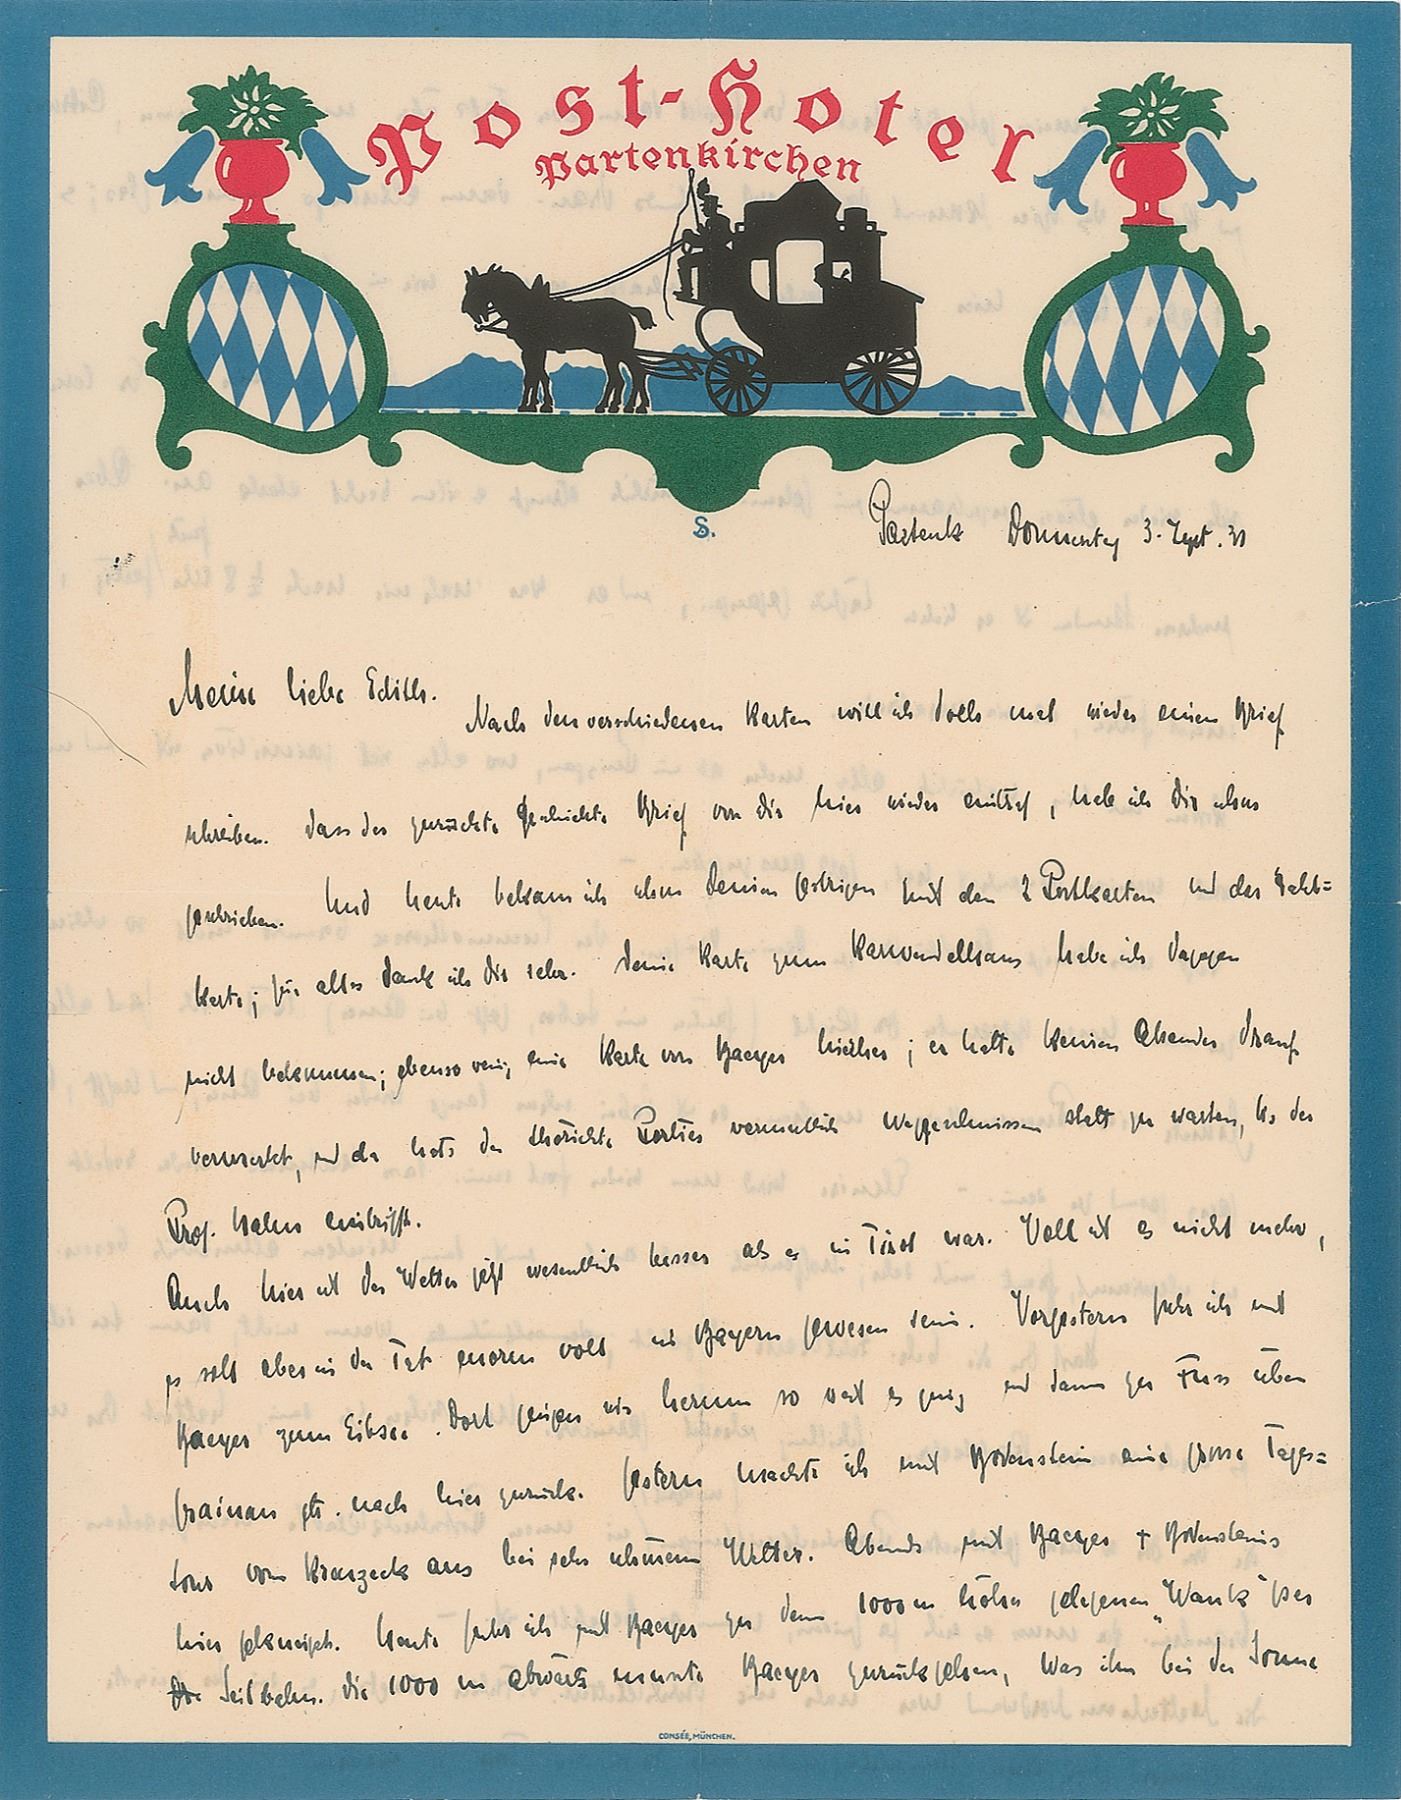 Post-Hotel
Partenkirchen
S.
Partenk Donnerstag 3. Sept. 31
Meine liebe Edith.
Nach den verschiedenen Karten will ich doch mal wieder einen Brief
schreiben. Dass der zurückgeschickte Brief von dir hier wieder eintraf, hab ich Dir schon
geschrieben. Und heute bekam ich schon Deinen gestrigen mit den 2 Postkarten und der
karte; für alles dank ich Dir sehr. Deine Karte zum Karwendelhaus habe ich dagegen
nicht bekommen; ebenso wenig eine Karte von Baeyer hierher; er hatte keinen Absender drauf
vermerkt, und da hats der thörichte Portier vermutlich weggeschmissen statt zu warten, bis der
Prof. Hahn eintrifft.
Auch hier ist das Wetter jetzt wesentlich besser als es in Tirol war. Voll ist es nicht mehr,
es soll aber in der Tat enorm voll in Bayern gewesen sein. Vorgestern fuhr ich mit
Baeyer zum Eibsee. Dort gingen wir herum so weit es ging und dann zu Fuss über
Grainau etc. nach hier zurück. Gestern machte ich mit Bodenstein eine grosse Tages=
tour vom Kreuzeck aus bei sehr schönem Wetter. Abends mit Baeyer + Bodensteins
hier gekneipt. Heute fuhr ich mit Baeyer zu dem 1000 m höher gelegenen "Wank" per
Seilbahn. Die 1000 m abwärts musste Baeyer zurückgehen, was ihm bei der Sonne
CONSÉE, MÜNCHEN.